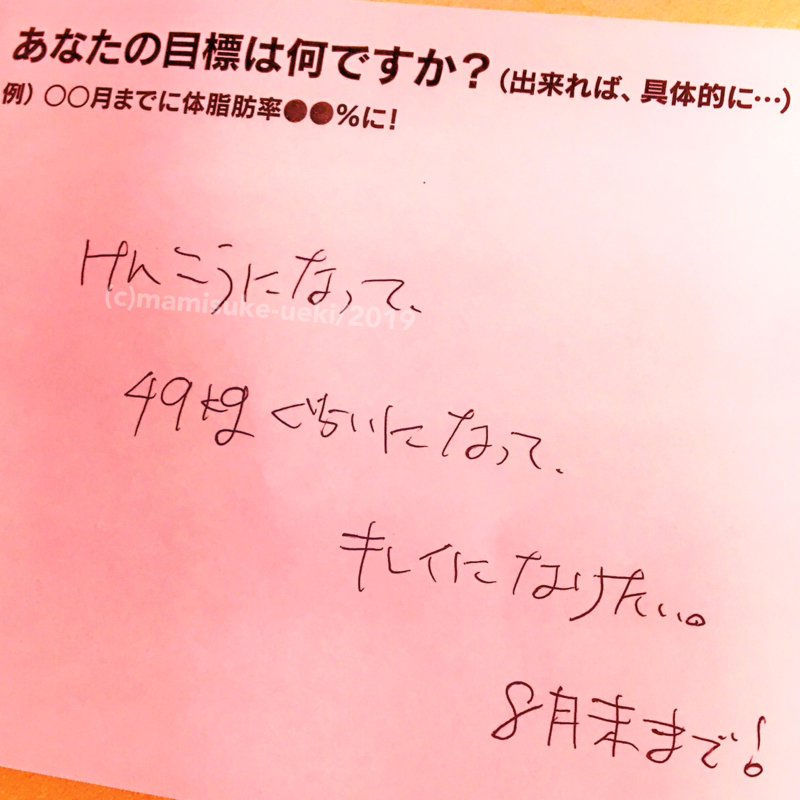 あなたの目標は何ですか？(出来れば、具体的に…)
例）〇〇月までに体脂肪率●●%に!
けんこうになって、
(c)mamisuke-ueki/2019
49kgぐらいになって、
キレイになりたい。
8月末まで!